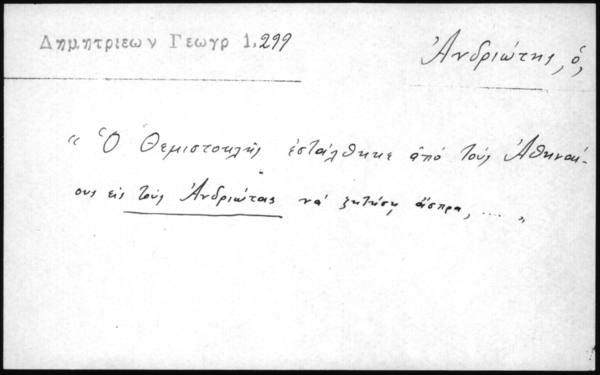 Δημητριεων Γεωγρ 1, 299
Ἀνδριώτης, ὁ,
“ Ὁ Θεμιστοκλῆς ἐστάλθηκε ἀπό τούς Ἀθηναί-
ους εἰς τούς Ἀνδριώτας νά ζητήσῃ ἄσπρα, .... „